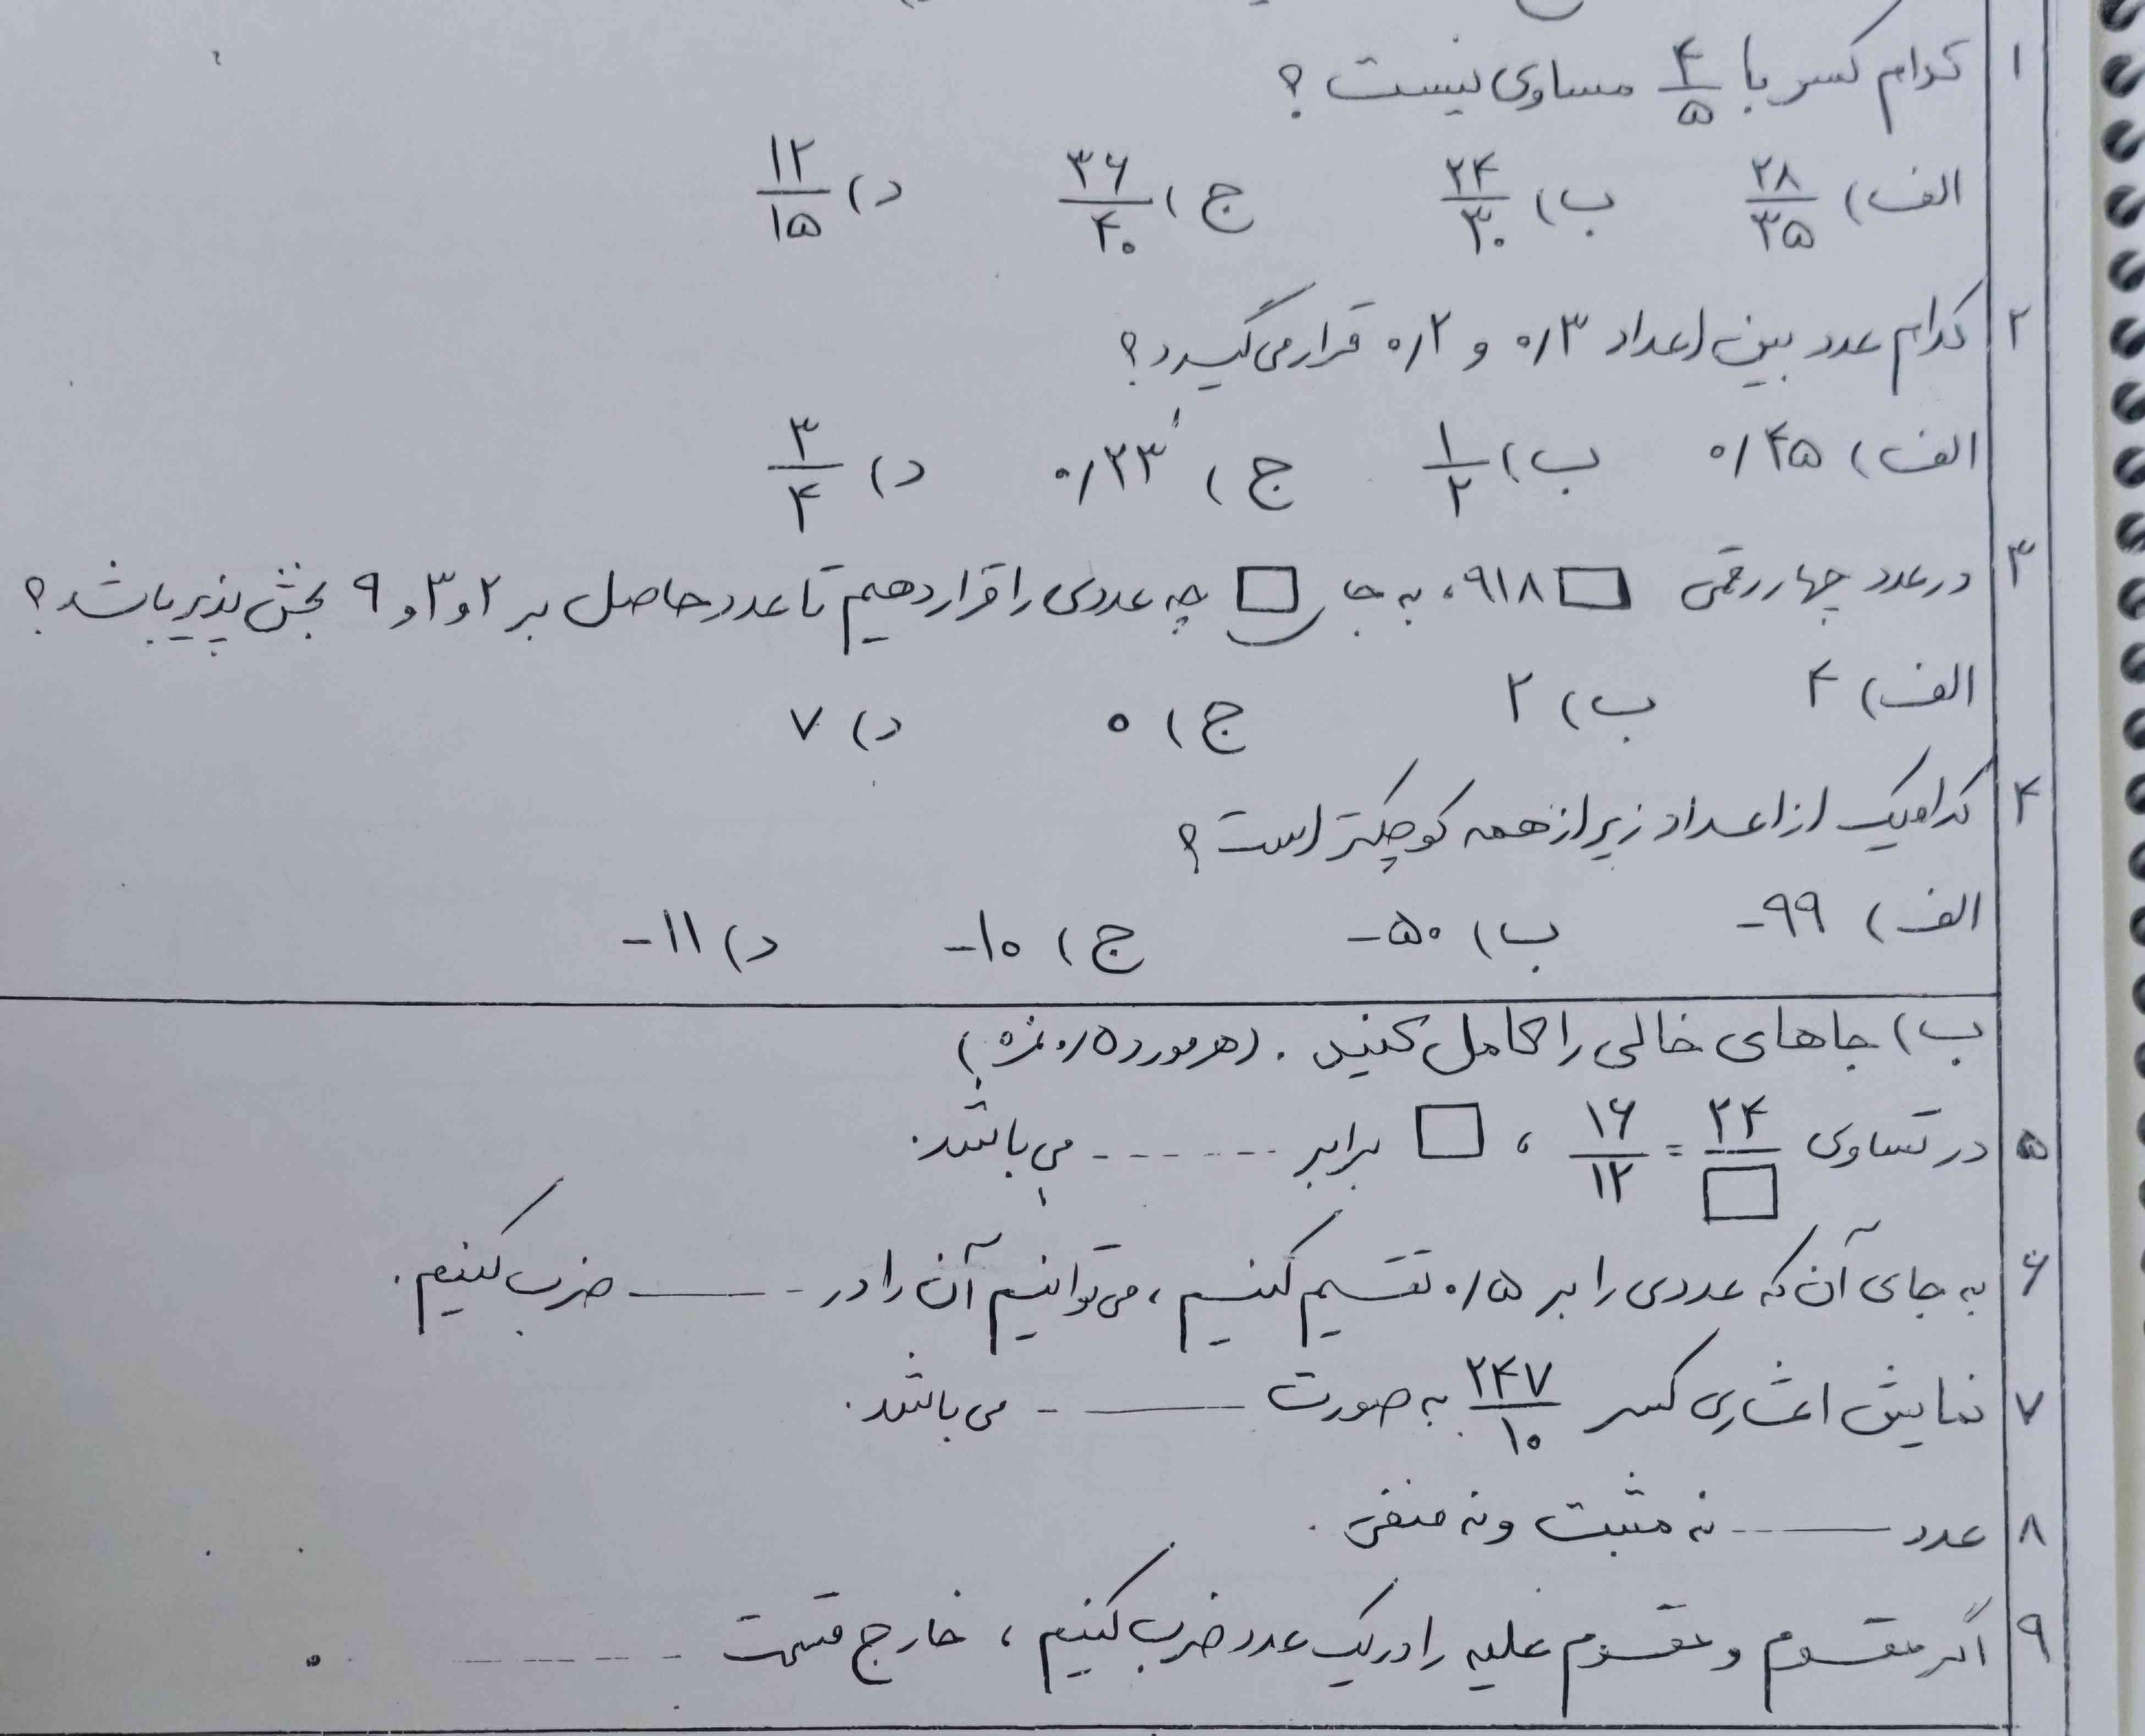 ۱ کدام کسر با ۴/۵ مساوی نیست ؟
الف) ۲۸/۳۵ ب) ۲۴/۳۰ ج) ۳۶/۴۰ د) ۱۲/۱۵
۲ کدام عدد بین اعداد ۰/۳ و ۰/۲ قرار می گیرد؟
الف) ۰/۴۵ ب) ۱/۲ ج) ۰/۲۳ د) ۳/۴
۳ در عدد چهار رقمی □۹۱۸، به جای □ چه عددی را قرار دهیم تا عدد حاصل بر ۲ و ۳ و ۹ بخش پذیر باشد؟
الف) ۴ ب) ۲ ج) ۰ د) ۷
۴ کدامیک از اعداد زیر از همه کوچکتر است ؟
الف) -۹۹ ب) -۵۰ ج) -۱۰ د) -۱۱
ب) جاهای خالی را کامل کنید . (هر مورد ۰/۵ نمره)
۵ در تساوی ۲۴/□ = ۱۶/۱۲ ، □ برابر ------ می باشد.
۶ به جای آن که عددی را بر ۰/۵ تقسیم کنیم، می توانیم آن را در ------ ضرب کنیم.
۷ نمایش اعشاری کسر ۲۴۷/۱۰ به صورت ------ می باشد.
۸ عدد ------ نه مثبت و نه منفی .
۹ اگر مقسوم و مقسوم علیه را در یک عدد ضرب کنیم ، خارج قسمت ------ .